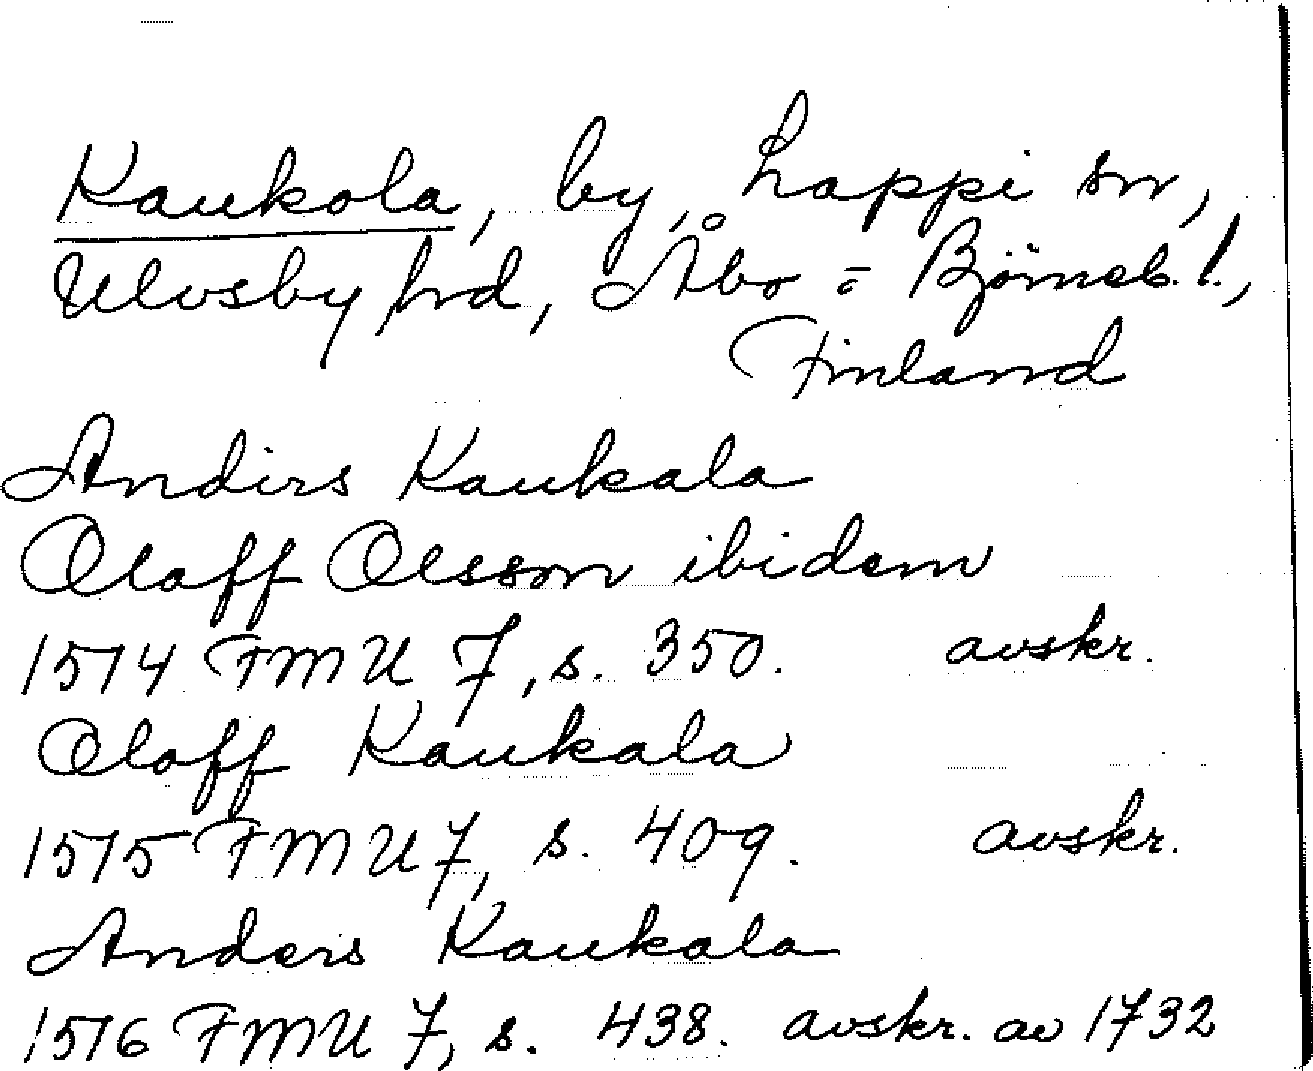 Kaukola, by, Lappi sn,
Ulvsby hrd, Åbo = Björneb. l.,
Finland
Anders Kaukala
Olaff Olsson ibidem
1514 FMU 7, s. 350. avskr.
Olaff Kaukala
1515 FMU 7, s. 409. avskr.
Anders Kaukala
1516 FMU 7, s. 438. avskr. av 1732